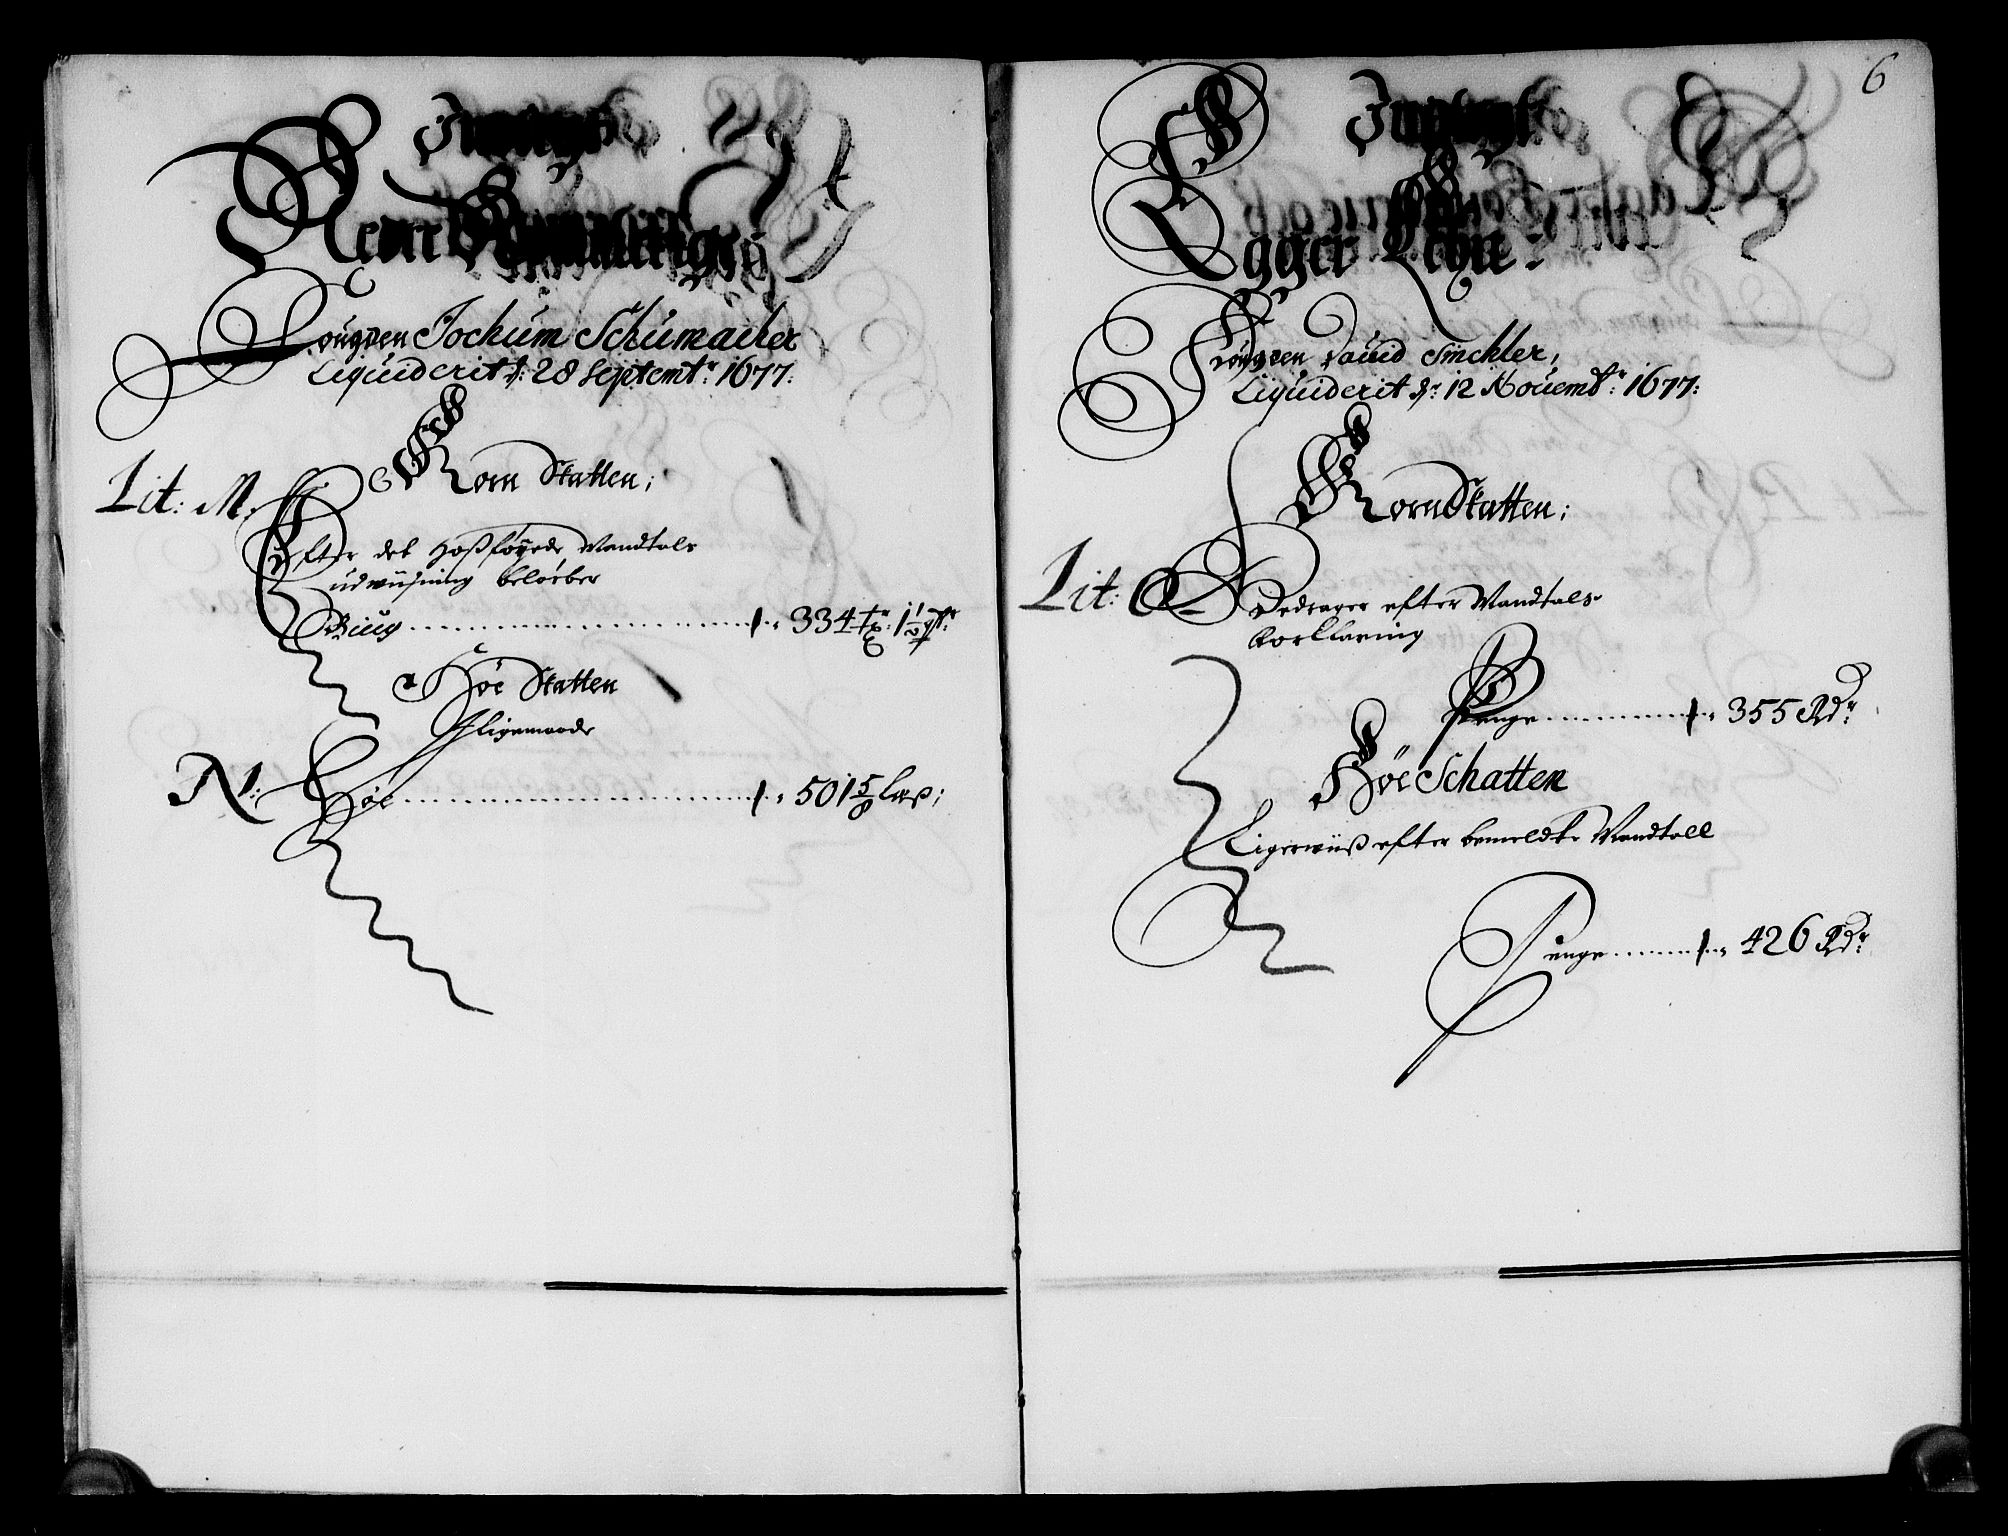 Indtegt
Fougden Jochum Schumacher
Liquiderit d: 28 Septembr: 1677:
Korn Skatten;
Lit: M:
Efter det hosføyede Mandtals
udwiisning beløeber
Biug 334 tr: 1½ qtr:
Høe Skatten
Ligemaade
N: Høe 501 5/8 læs;
6
Indtegt
Egger Lehn
Fougden Dauid Sinckler,
Liquiderit d: 12 Nouembr: 1677:
Korn Skatten;
Lit: O
Bedrager efter Mandtals
forklaring
Penge 355 Rdr:
Høe Schatten
Ligerwiis efter bemeldte Mandtall
Penge 426 Rdr: